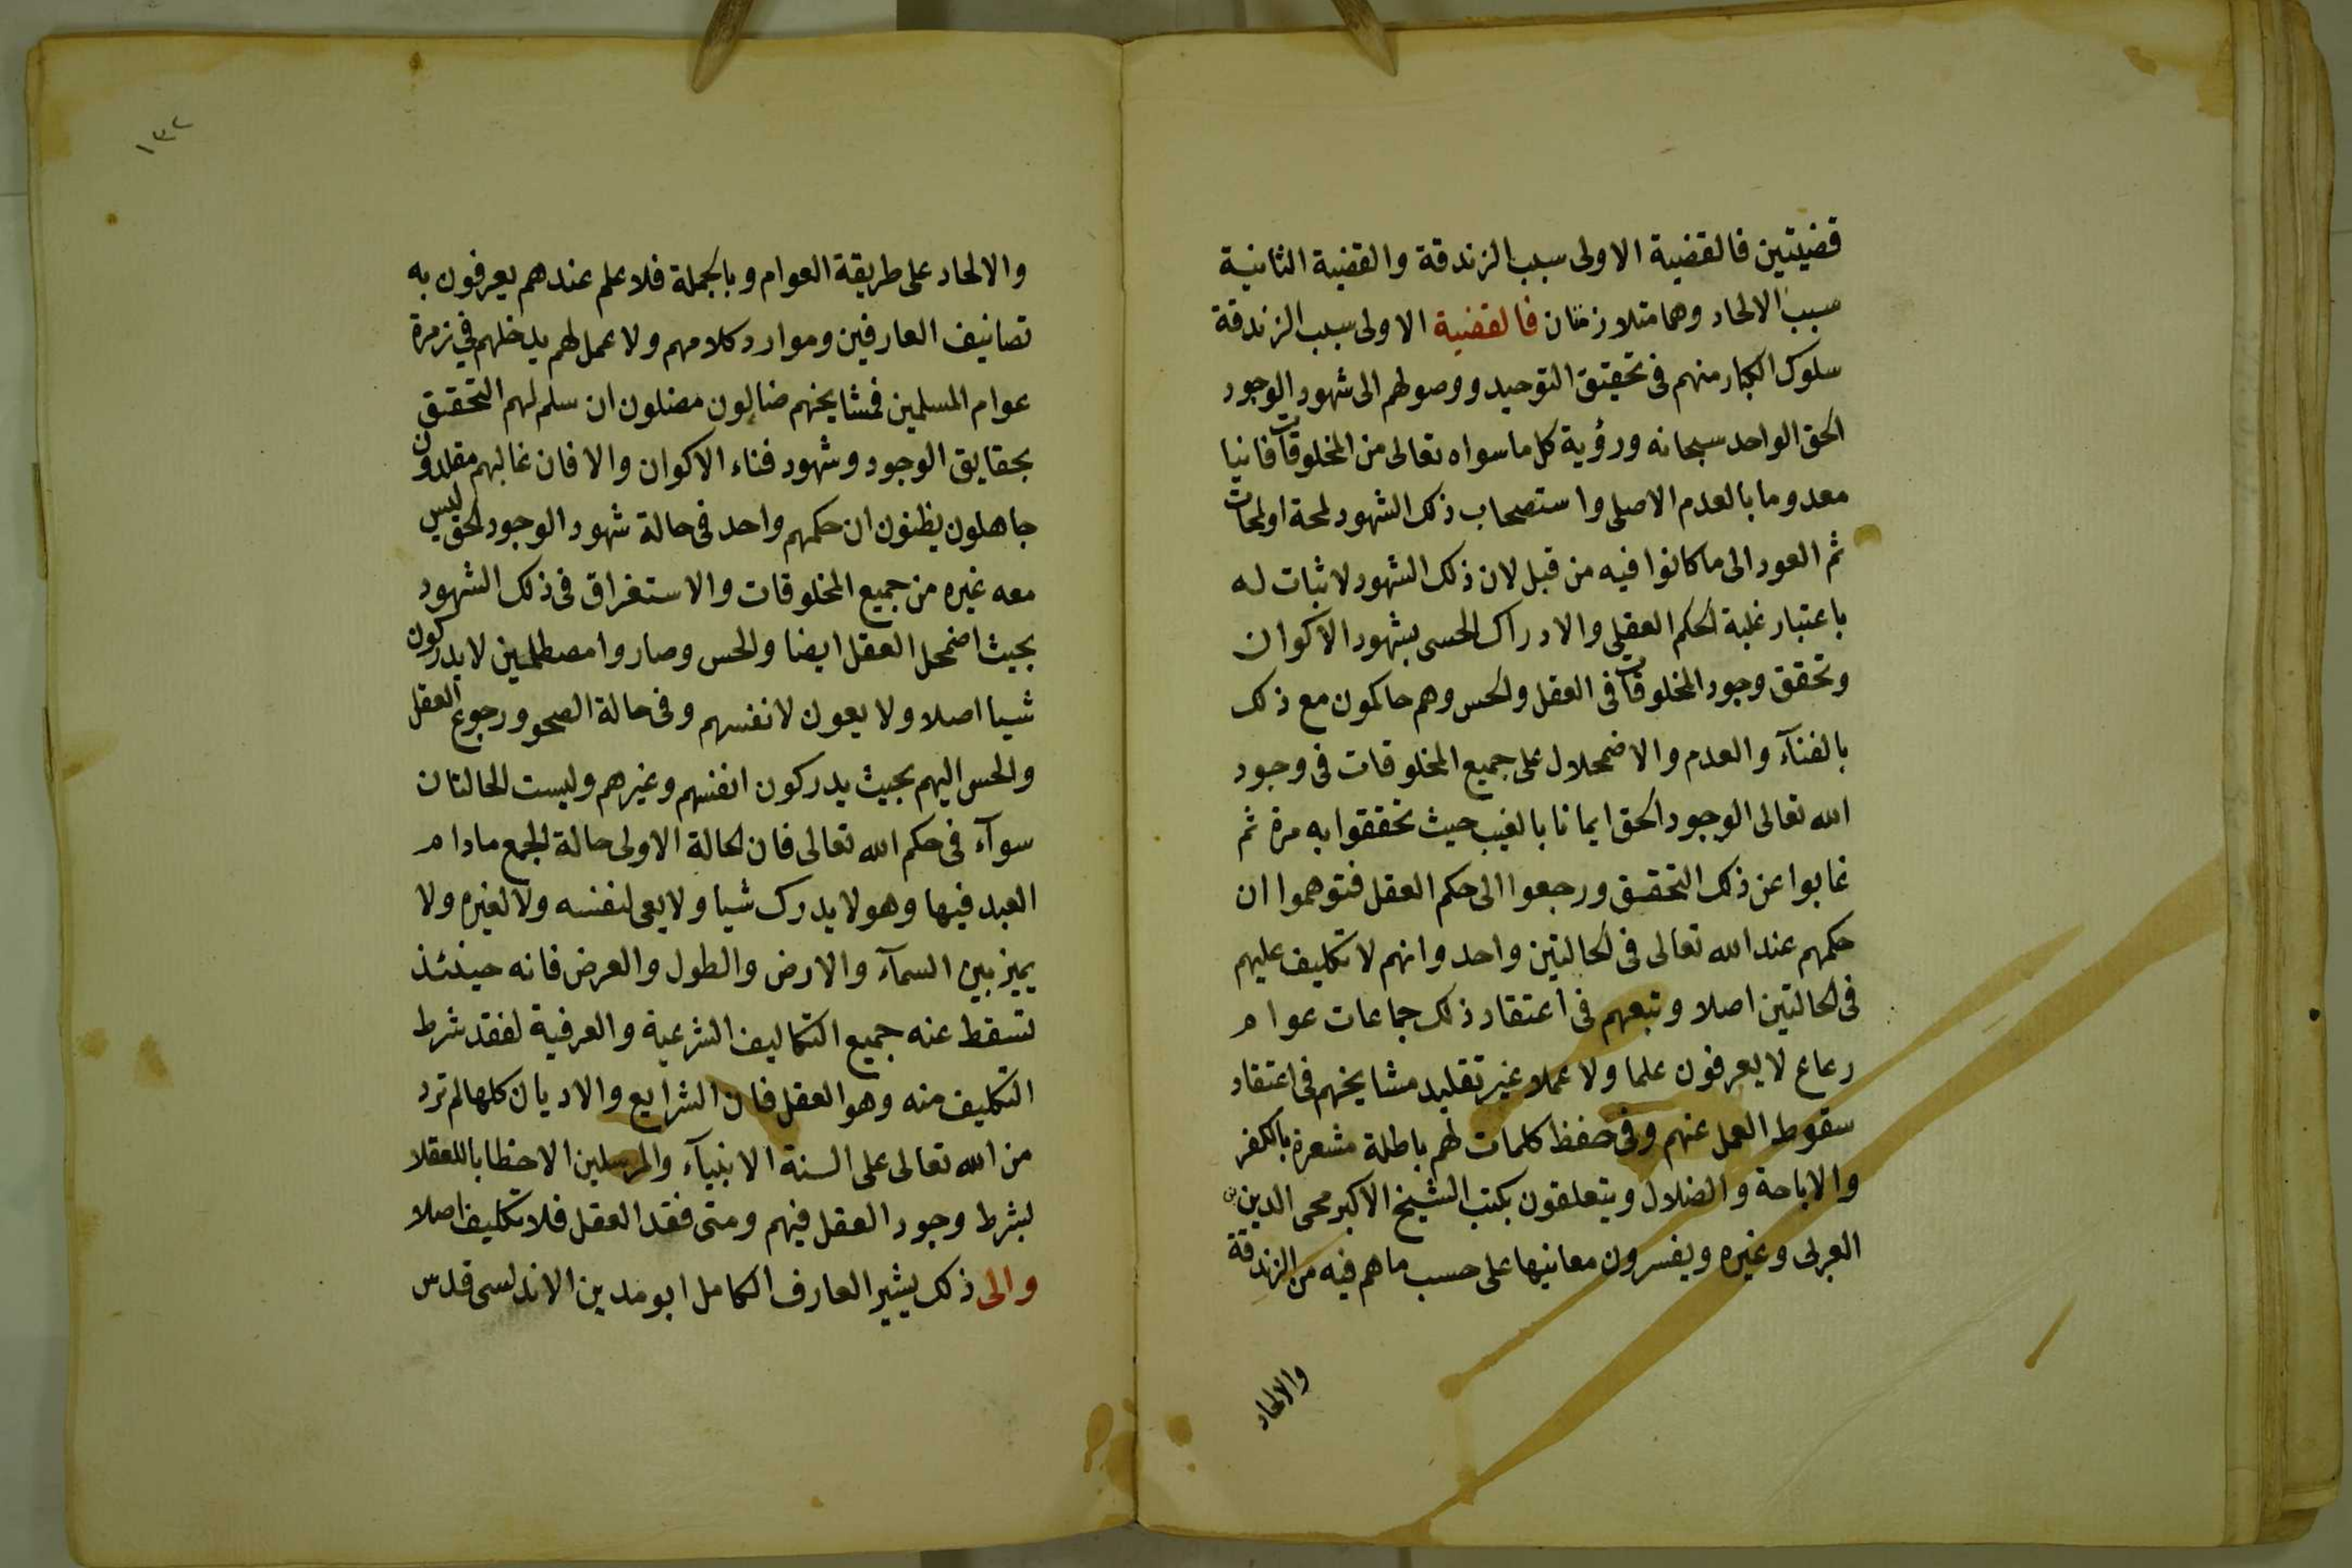 قضيتين فالقضية الاولى سبب الزندقة والقضية الثانية
سبب الالحاد وهما متلازمتان فالقضية الاولى سبب الزندقة
سلوك الكبار منهم فى تحقيق التوحيد ووصولهم الى شهود الوجود
الحق الواحد سبحانه ورؤية كل ما سواه تعالى من المخلوقات فانيا
معدوما بالعدم الاصلى واستصحاب ذلك الشهود لمحة او لمحات
ثم العود الى ما كانوا فيه من قبل لان ذلك الشهود لا ثبات له
باعتبار غلبة الحكم العقلى والادراك الحسى بشهود الاكوان
وتحقق وجود المخلوقات فى العقل والحس وهم حاكمون مع ذلك
بالفنآء والعدم والاضمحلال على جميع المخلوقات فى وجود
الله تعالى الوجود الحق ايمانا بالغيب حيث تحققوا به مرة ثم
غابوا عن ذلك التحقيق ورجعوا الى حكم العقل فتوهموا ان
حكمهم عند الله تعالى فى الحالتين واحد وانهم لا تكليف عليهم
فى الحالتين اصلا وتبعهم فى اعتقاد ذلك جماعات عوام
رعاع لا يعرفون علما ولا عملا غير تقليد مشايخهم فى اعتقاد
سقوط العمل عنهم وفى حفظ كلمات لهم باطلة مشعرة بالكفر
والاباحة والضلال ويتعلقون بكتب الشيخ الاكبر محى الدين بن
العربى وغيره ويفسرون معانيها على حسب ما هم فيه من الزندقة
والالحاد
١٣٢
والالحاد على طريقة العوام وبالجملة فلا علم عندهم يعرفون به
تصانيف العارفين وموارد كلامهم ولا عمل لهم يدخلهم فى زمرة
عوام المسلمين فمشايخهم ضالون مضلون ان سلم لهم التحقيق
بحقايق الوجود وشهود فناء الاكوان والا فان غالبهم مقلدون
جاهلون يظنون ان حكمهم واحد فى حالة شهود الوجود الحق ليس
معه غيره من جميع المخلوقات والاستغراق فى ذلك الشهود
بحيث اضمحل العقل ايضا والحس وصاروا مصطلمين لا يدركون
شيا اصلا ولا يعون لانفسهم وفى حالة الصحو ورجوع العقل
والحس اليهم بحيث يدركون انفسهم وغيرهم وليست الحالتان
سوآء فى حكم الله تعالى فان الحالة الاولى حالة الجمع مادام
العبد فيها وهو لا يدرك شيا ولا يعى لنفسه ولا لغيره ولا
يميز بين السمآء والارض والطول والعرض فانه حينئذ
تسقط عنه جميع التكاليف الشرعية والعرفية لفقد شرط
التكليف منه وهو العقل فان الشرايع والاديان كلها لم ترد
من الله تعالى على السنة الانبيآء والمرسلين الا خطابا للعقلا
بشرط وجود العقل فيهم ومتى فقد العقل فلا تكليف اصلا
والى ذلك يشير العارف الكامل ابو مدين الاندلسى قدس